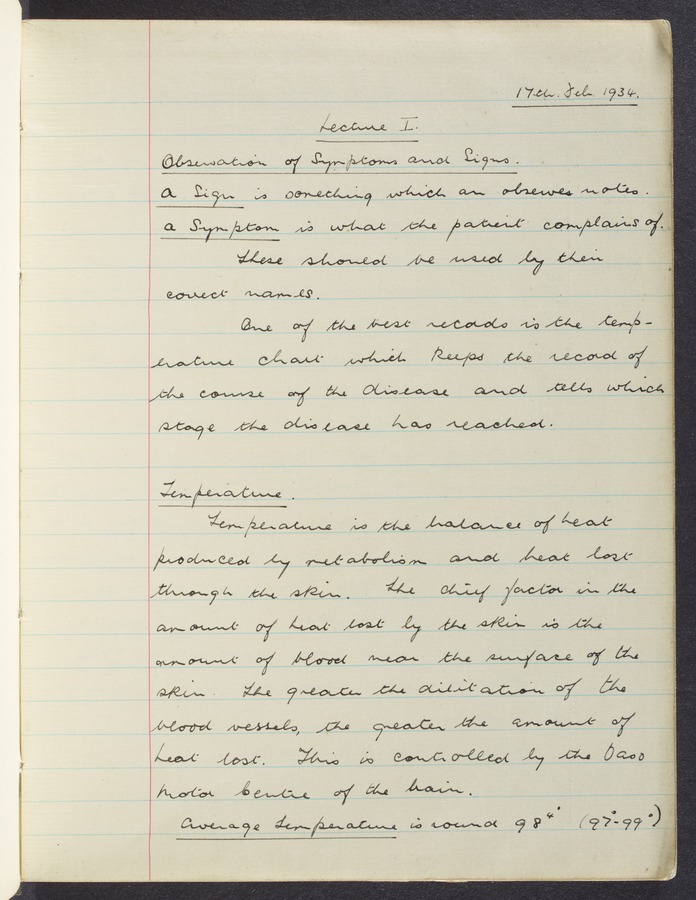 17th. Feb 1934.
Lecture I.
Observation of Symptoms and Signs.
A Sign is something which an observes notes.
A Symptom is what the patient complains of.
These should be used by their
correct names.
One of the best records is the temp-
erature chart which keeps the record of
the course of the disease and tells which
stage the disease has reached.
Temperature.
Temperature is the balance of heat
produced by metabolism and heat lost
through the skin. The chief factor in the
amount of heat lost by the skin is the
amount of blood near the surface of the
skin. The greater the dilitation of the
blood vessels, the greater the amount of
heat lost. This is controlled by the Vaso
Motor Centre of the brain.
Average Temperature is round 98⁴° (97°-99°)